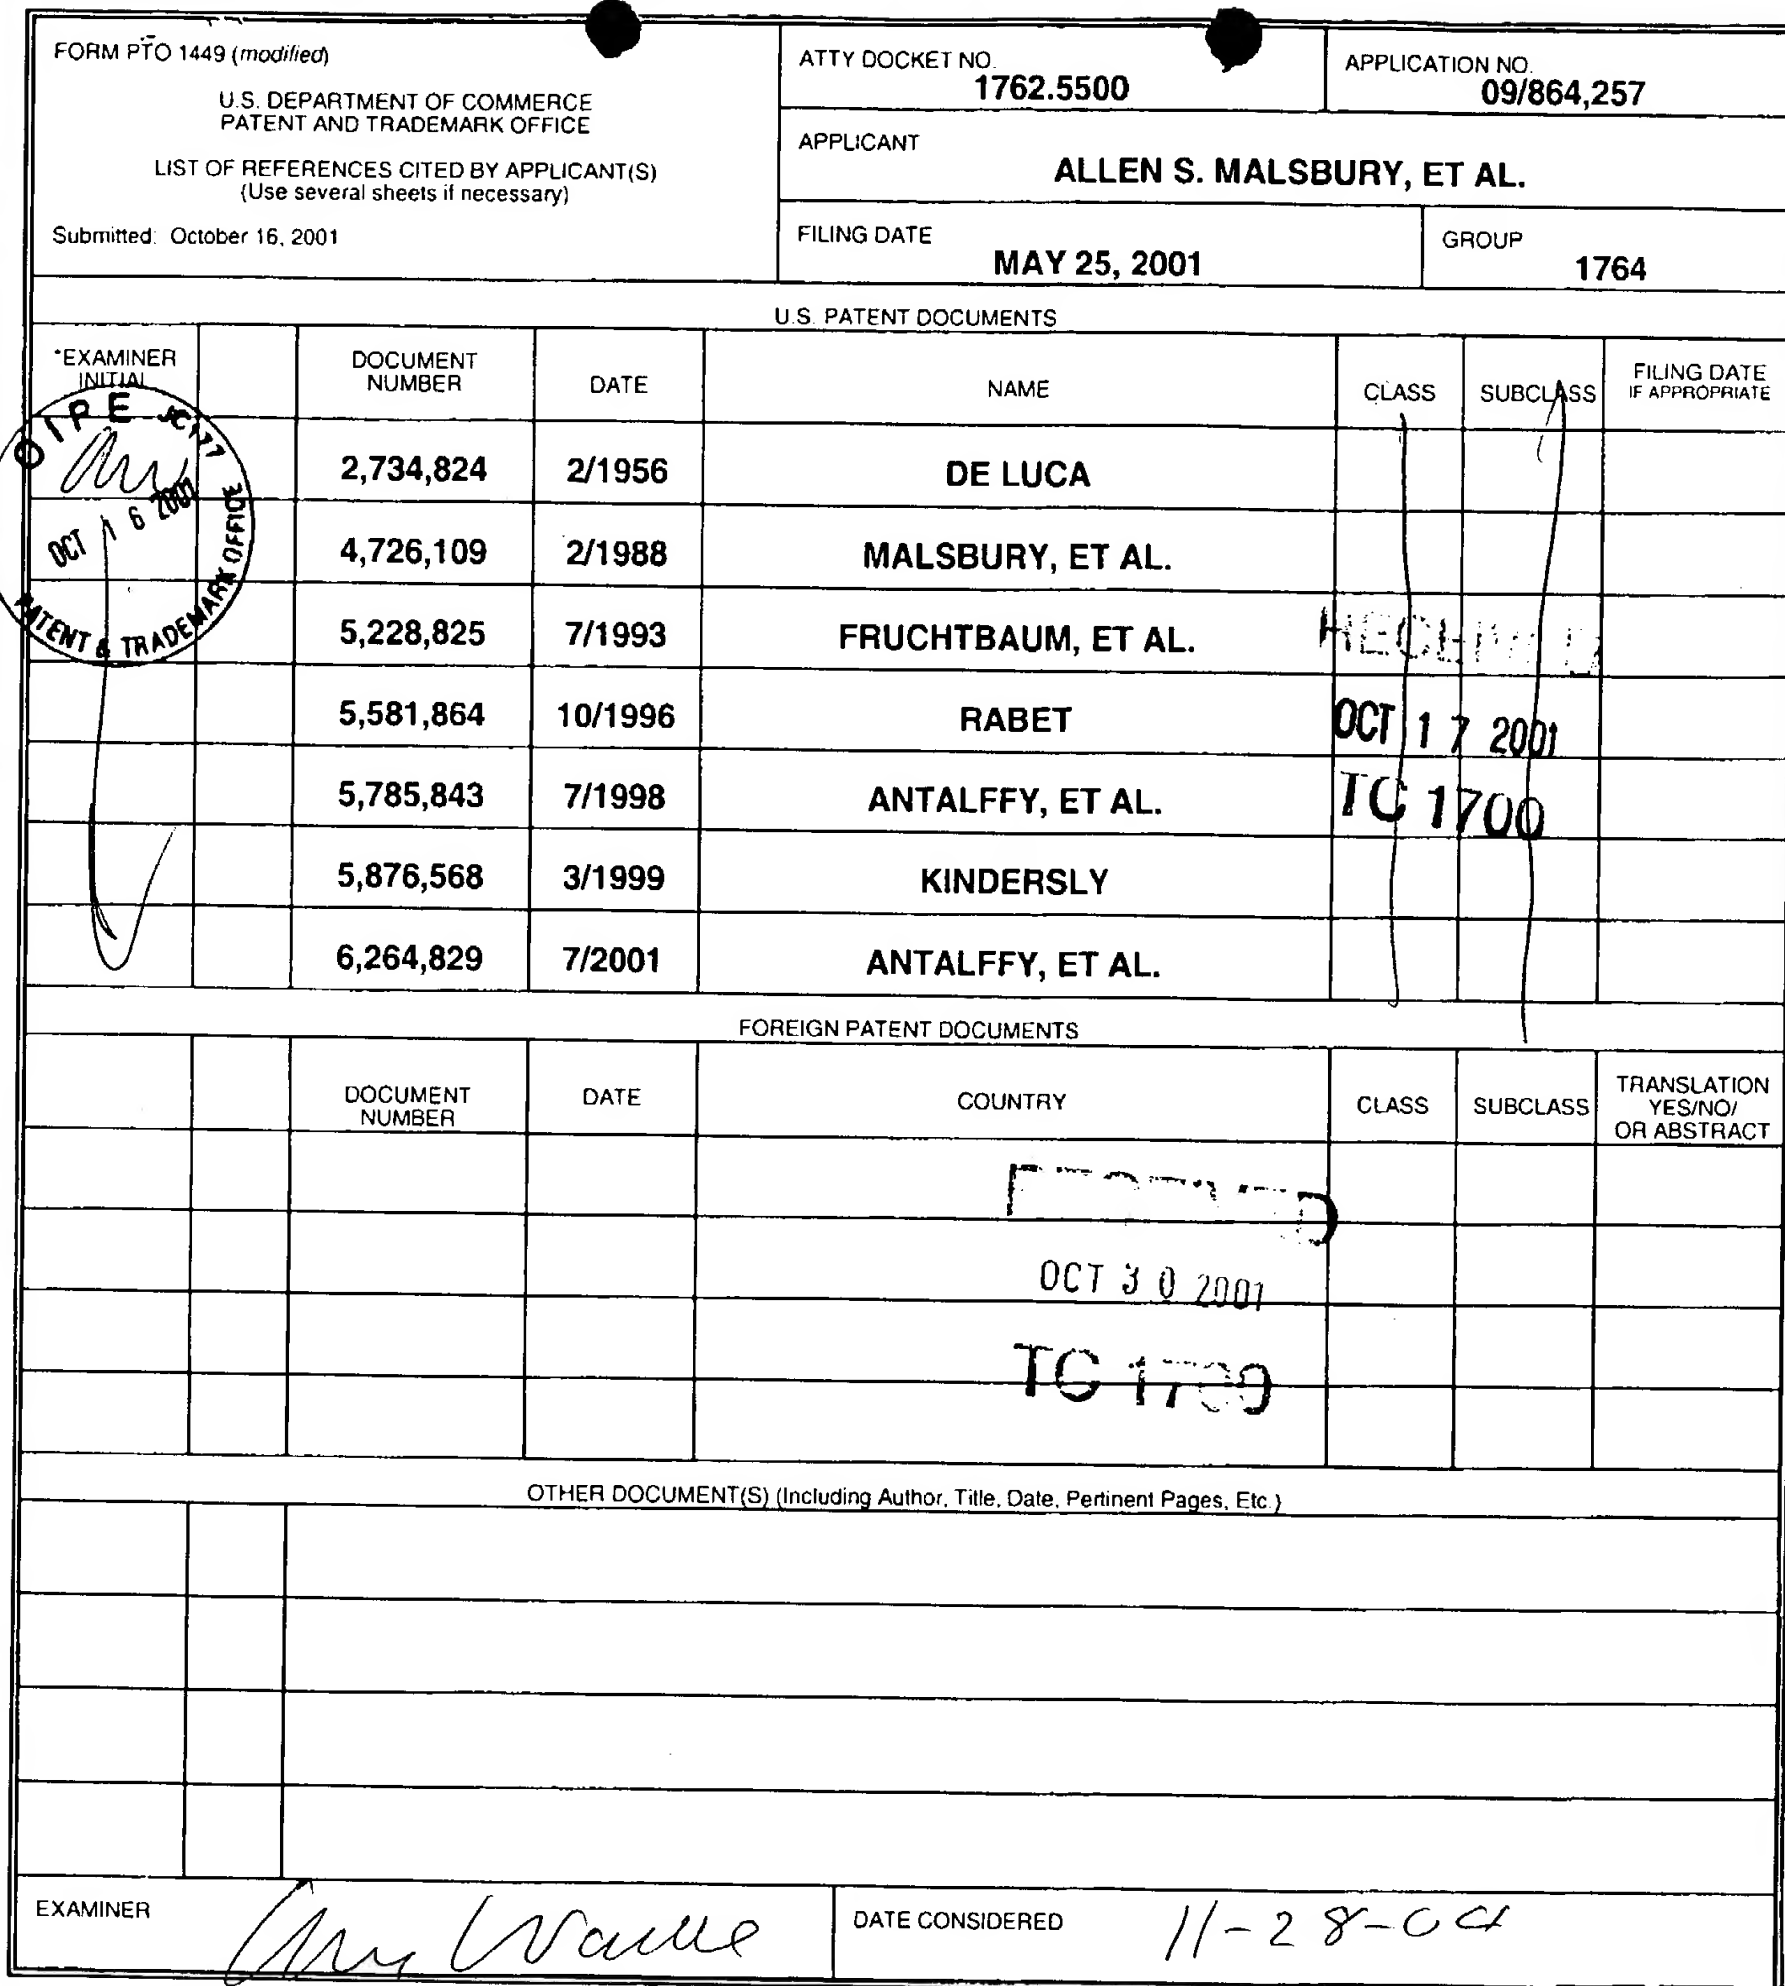 FORM PTO 1449 (modified)
U.S. DEPARTMENT OF COMMERCE
PATENT AND TRADEMARK OFFICE
LIST OF REFERENCES CITED BY APPLICANT(S)
(Use several sheets if necessary)
Submitted: October 16, 2001
ATTY DOCKET NO.
1762.5500
APPLICATION NO.
09/864,257
APPLICANT
ALLEN S. MALSBURY, ET AL.
FILING DATE
MAY 25, 2001
GROUP
1764
U.S. PATENT DOCUMENTS
*EXAMINER INITIAL DOCUMENT NUMBER DATE NAME CLASS SUBCLASS FILING DATE IF APPROPRIATE
OIPE JC177
OCT 16 2001
PATENT & TRADEMARK OFFICE
2,734,824 2/1956 DE LUCA
4,726,109 2/1988 MALSBURY, ET AL.
5,228,825 7/1993 FRUCHTBAUM, ET AL.
5,581,864 10/1996 RABET
OCT 17 2001
5,785,843 7/1998 ANTALFFY, ET AL.
TC 1700
5,876,568 3/1999 KINDERSLY
6,264,829 7/2001 ANTALFFY, ET AL.
FOREIGN PATENT DOCUMENTS
DOCUMENT NUMBER DATE COUNTRY CLASS SUBCLASS TRANSLATION YES/NO/ OR ABSTRACT
OCT 30 2001
TC 1700
OTHER DOCUMENT(S) (Including Author, Title, Date, Pertinent Pages, Etc.)
EXAMINER
DATE CONSIDERED 11-28-04